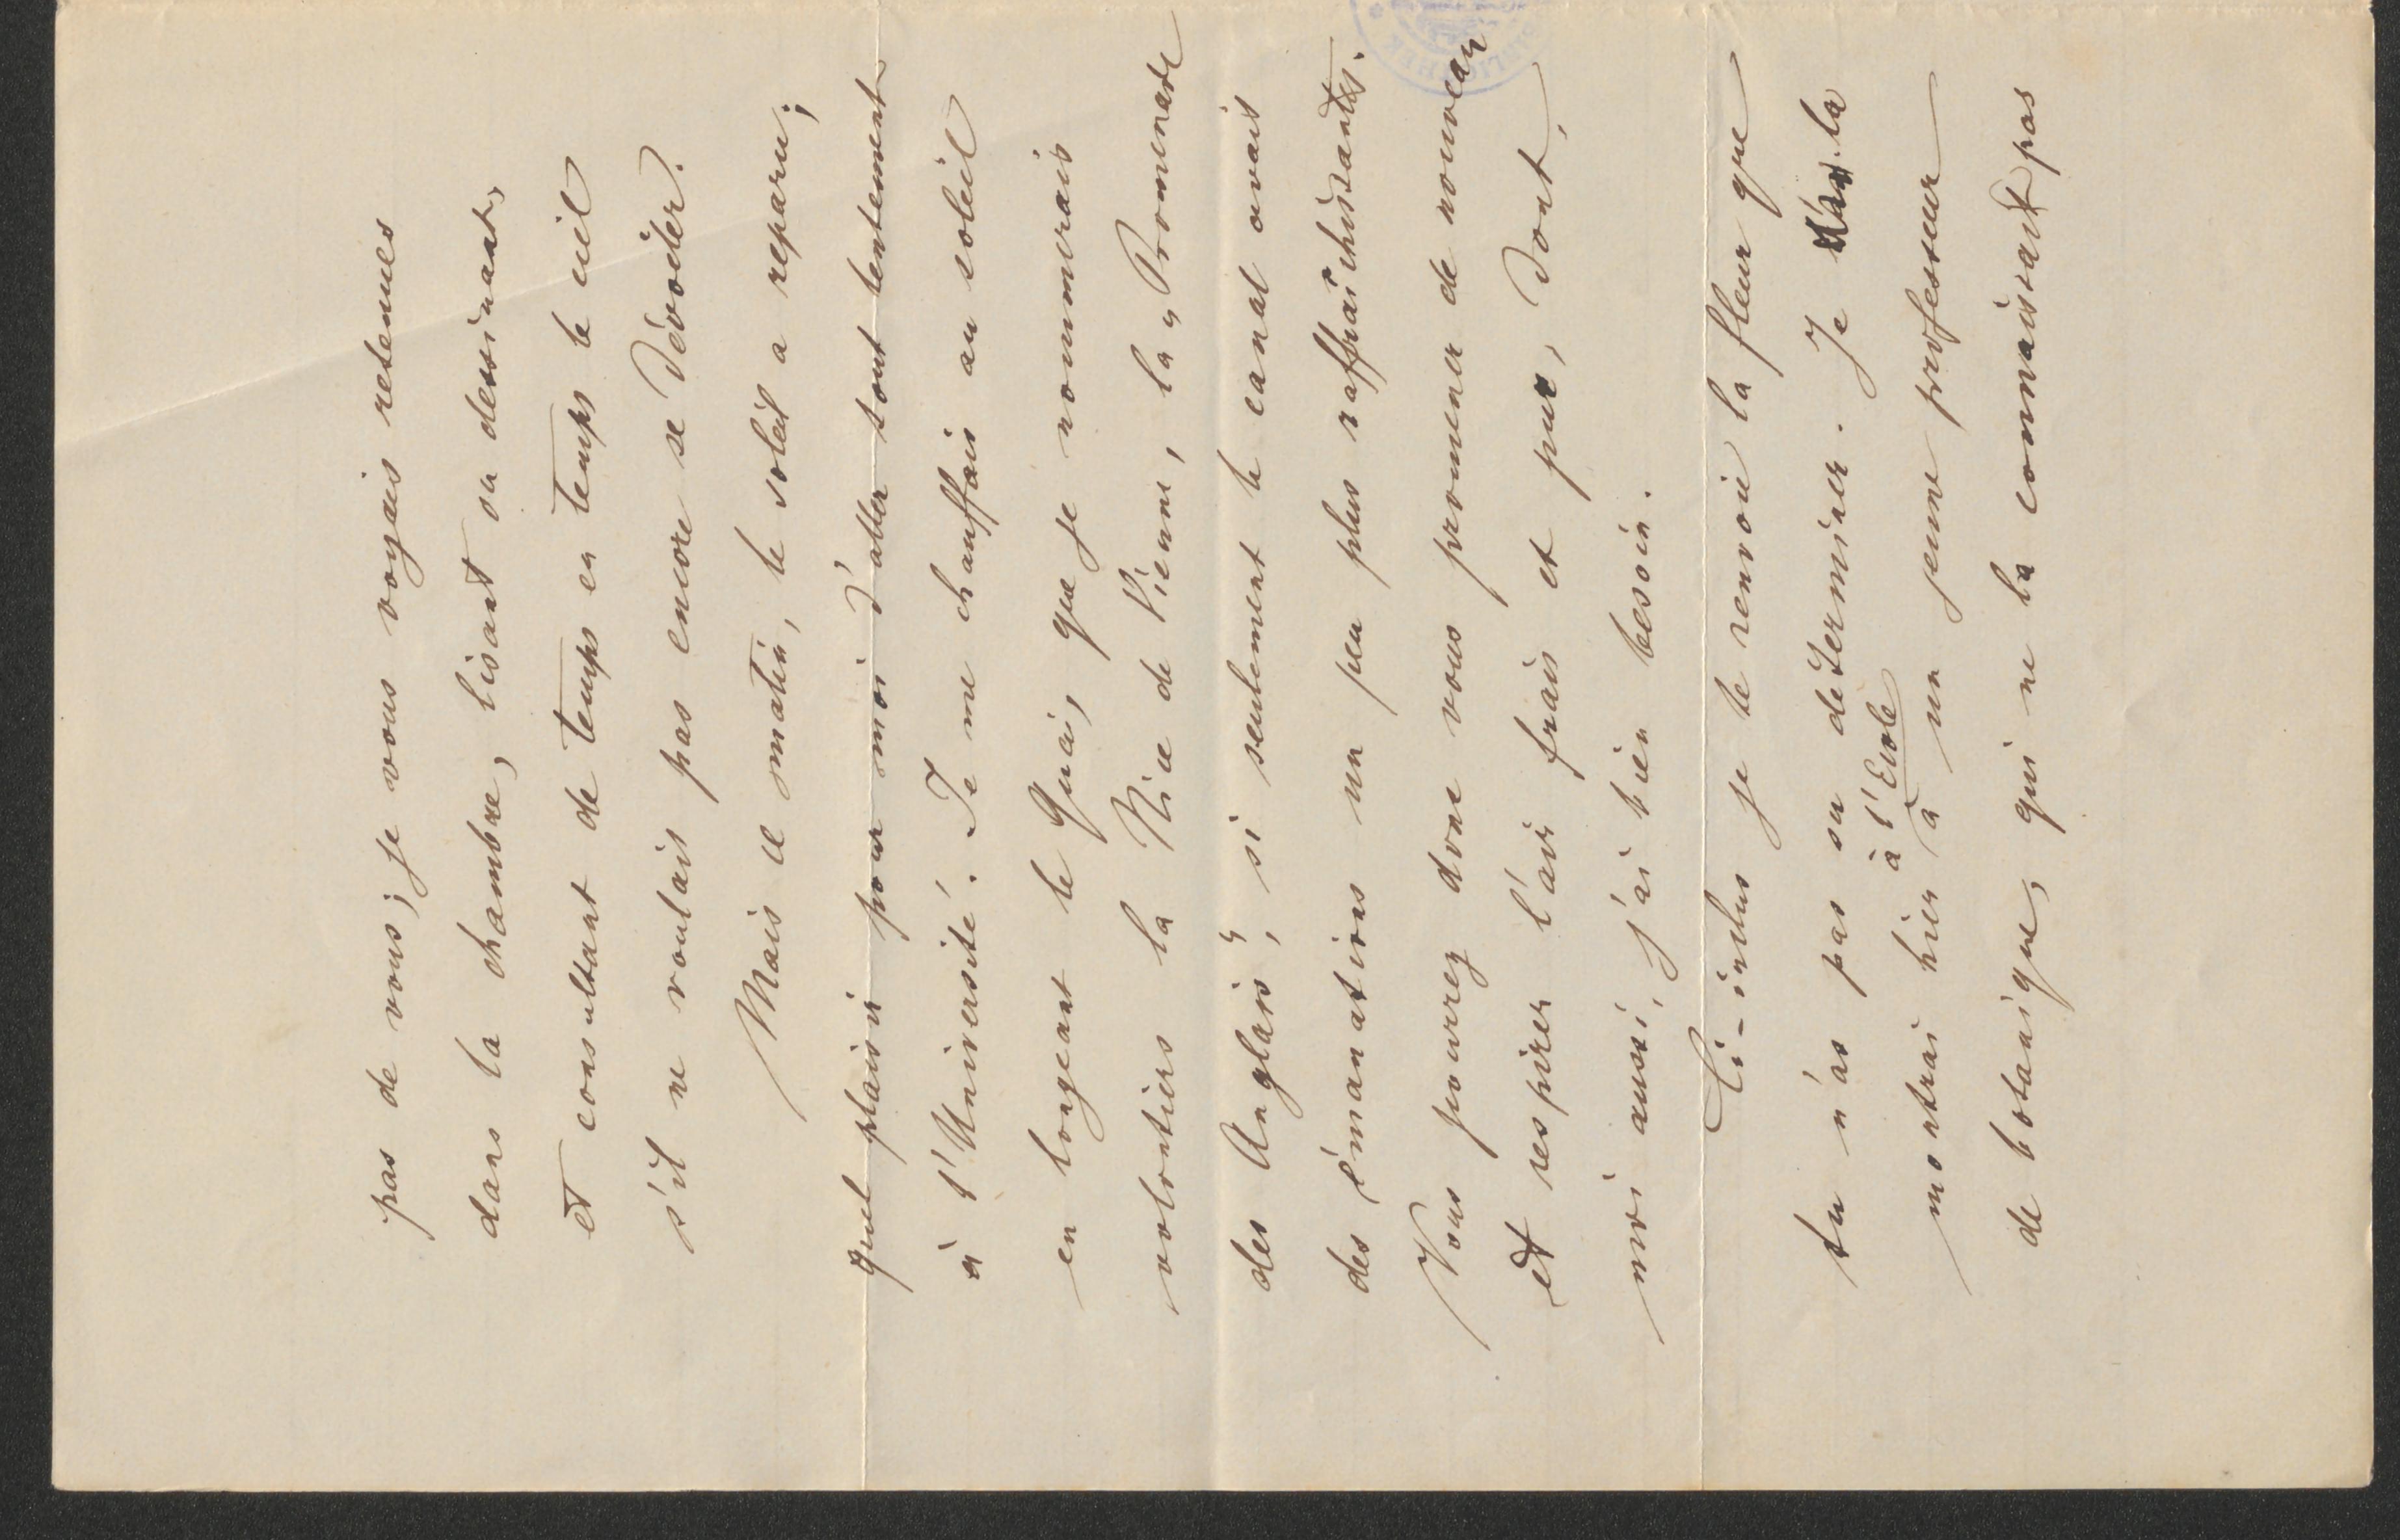 pas de vous; je vous voyais retenues
dans la chambre, lisant ou dessinant,
et consultant de temps en temps le ciel
s'il ne voulait pas encore se dévoiler.
Mais ce matin, le soleil a reparu;
quel plaisir pour moi d'aller tout lentement
à l'Université. Je me chauffais au soleil
en longeant le Quai, que je nommerais
volontiers la Nice de Vienne, la „Promenade
des Anglais", si seulement le canal avait
des émanations un peu plus raffraîchissantes.
Vous pourrez donc vous promener de nouveau
et respirer l'air frais et pur, dont,
moi aussi, j'ai bien besoin.
Ci-inclus je te renvoie la fleur que
tu n'as pas su déterminer. Je la
montrai hier à l'Ecole à un jeune professeur
de botanique, qui ne la connaissait pas